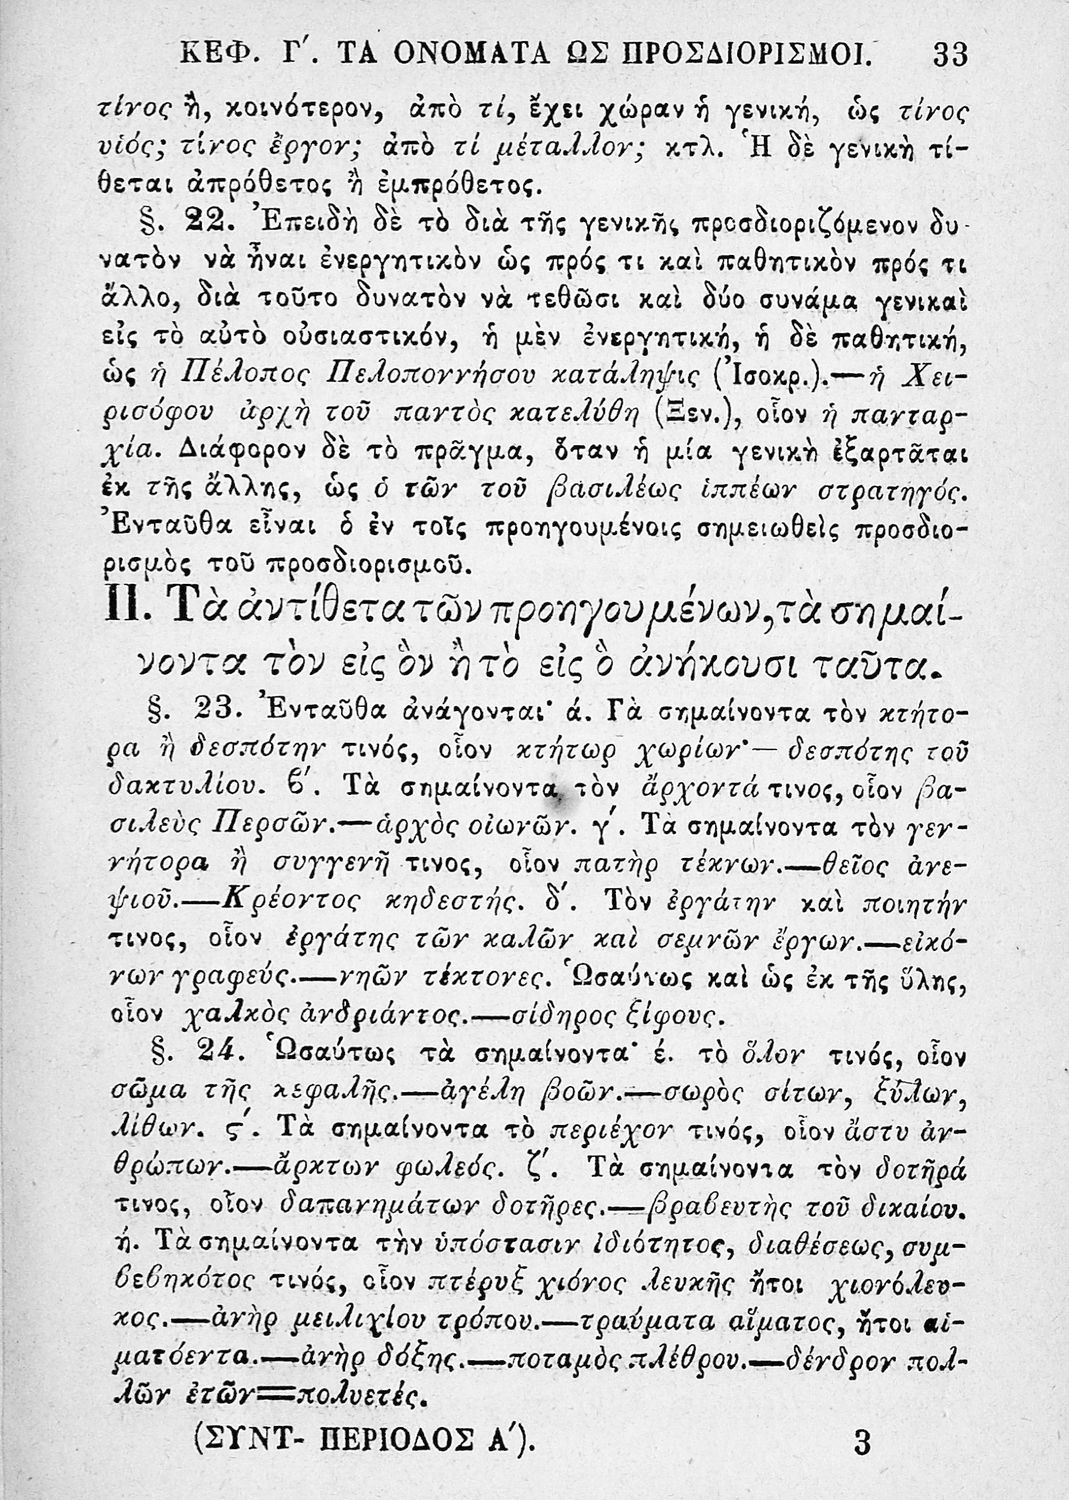 ΚΕΦ. Γ΄. ΤΑ ΟΝΟΜΑΤΑ ΩΣ ΠΡΟΣΔΙΟΡΙΣΜΟΙ. 33
τίνος ἢ, κοινότερον, ἀπὸ τί, ἔχει χώραν ἡ γενική, ὡς τίνος
υἱός; τίνος ἔργον; ἀπὸ τί μέταλλον; κτλ. Ἡ δὲ γενικὴ τί-
θεται ἀπρόθετος ἢ ἐμπρόθετος.
§. 22. Ἐπειδὴ δὲ τὸ διὰ τῆς γενικῆς προσδιοριζόμενον δυ-
νατὸν νὰ ἦναι ἐνεργητικὸν ὡς πρός τι καὶ παθητικὸν πρός τι
ἄλλο, διὰ τοῦτο δυνατὸν νὰ τεθῶσι καὶ δύο συνάμα γενικαὶ
εἰς τὸ αὐτὸ οὐσιαστικόν, ἡ μὲν ἐνεργητική, ἡ δὲ παθητική,
ὡς ἡ Πέλοπος Πελοποννήσου κατάληψις (Ἰσοκρ.).—ἡ Χει-
ρισόφου ἀρχὴ τοῦ παντὸς κατελύθη (Ξεν.), οἷον ἡ πανταρ-
χία. Διάφορον δὲ τὸ πρᾶγμα, ὅταν ἡ μία γενικὴ ἐξαρτᾶται
ἐκ τῆς ἄλλης, ὡς ὁ τῶν τοῦ βασιλέως ἱππέων στρατηγός.
Ἐνταῦθα εἶναι ὁ ἐν τοῖς προηγουμένοις σημειωθεὶς προσδιο-
ρισμὸς τοῦ προσδιορισμοῦ.
II. Τὰ ἀντίθετα τῶν προηγουμένων, τὰ σημαί-
νοντα τὸν εἰς ὃν ἢ τὸ εἰς ὃ ἀνήκουσι ταῦτα.
§. 23. Ἐνταῦθα ἀνάγονται· ά. Γὰ σημαίνοντα τὸν κτήτο-
ρα ἢ δεσπότην τινός, οἷον κτήτωρ χωρίων·—δεσπότης τοῦ
δακτυλίου. ϐ΄. Τὰ σημαίνοντα τὸν ἄρχοντά τινος, οἷον βα-
σιλεὺς Περσῶν.—ἀρχὸς οἰωνῶν. γ΄. Τὰ σημαίνοντα τὸν γεν-
νήτορα ἢ συγγενῆ τινος, οἷον πατὴρ τέκνων.—θεῖος ἀνε-
ψιοῦ.—Κρέοντος κηδεστής. δ΄. Τὸν ἐργάτην καὶ ποιητήν
τινος, οἷον ἐργάτης τῶν καλῶν καὶ σεμνῶν ἔργων.—εἰκό-
νων γραφεύς.—νηῶν τέκτονες. Ὡσαύτως καὶ ὡς ἐκ τῆς ὕλης,
οἷον χαλκὸς ἀνδριάντος.—σίδηρος ξίφους.
§. 24. Ὡσαύτως τὰ σημαίνοντα· έ. τὸ ὅλον τινός, οἷον
σῶμα τῆς κεφαλῆς.—ἀγέλη βοῶν.—σωρὸς σίτων, ξύλων,
λίθων. ς΄. Τὰ σημαίνοντα τὸ περιέχον τινός, οἷον ἄστυ ἀν-
θρώπων.—ἄρκτων φωλεός. ζ΄. Τὰ σημαίνοντα τὸν δοτῆρά
τινος, οἷον δαπανημάτων δοτῆρες.—βραϐευτὴς τοῦ δικαίου.
ή. Τὰ σημαίνοντα τὴν ὑπόστασιν ἰδιότητος, διαθέσεως, συμ-
ϐεϐηκότος τινός, οἷον πτέρυξ χιόνος λευκῆς ἤτοι χιονόλευ-
κος.—ἀνὴρ μειλιχίου τρόπου.—τραύματα αἵματος, ἤτοι αἱ-
ματόεντα.—ἀνὴρ δόξης.—ποταμὸς πλέθρου.—δένδρον πολ-
λῶν ἐτῶν=πολυετές.
(ΣΥΝΤ- ΠΕΡΙΟΔΟΣ Α΄). 3